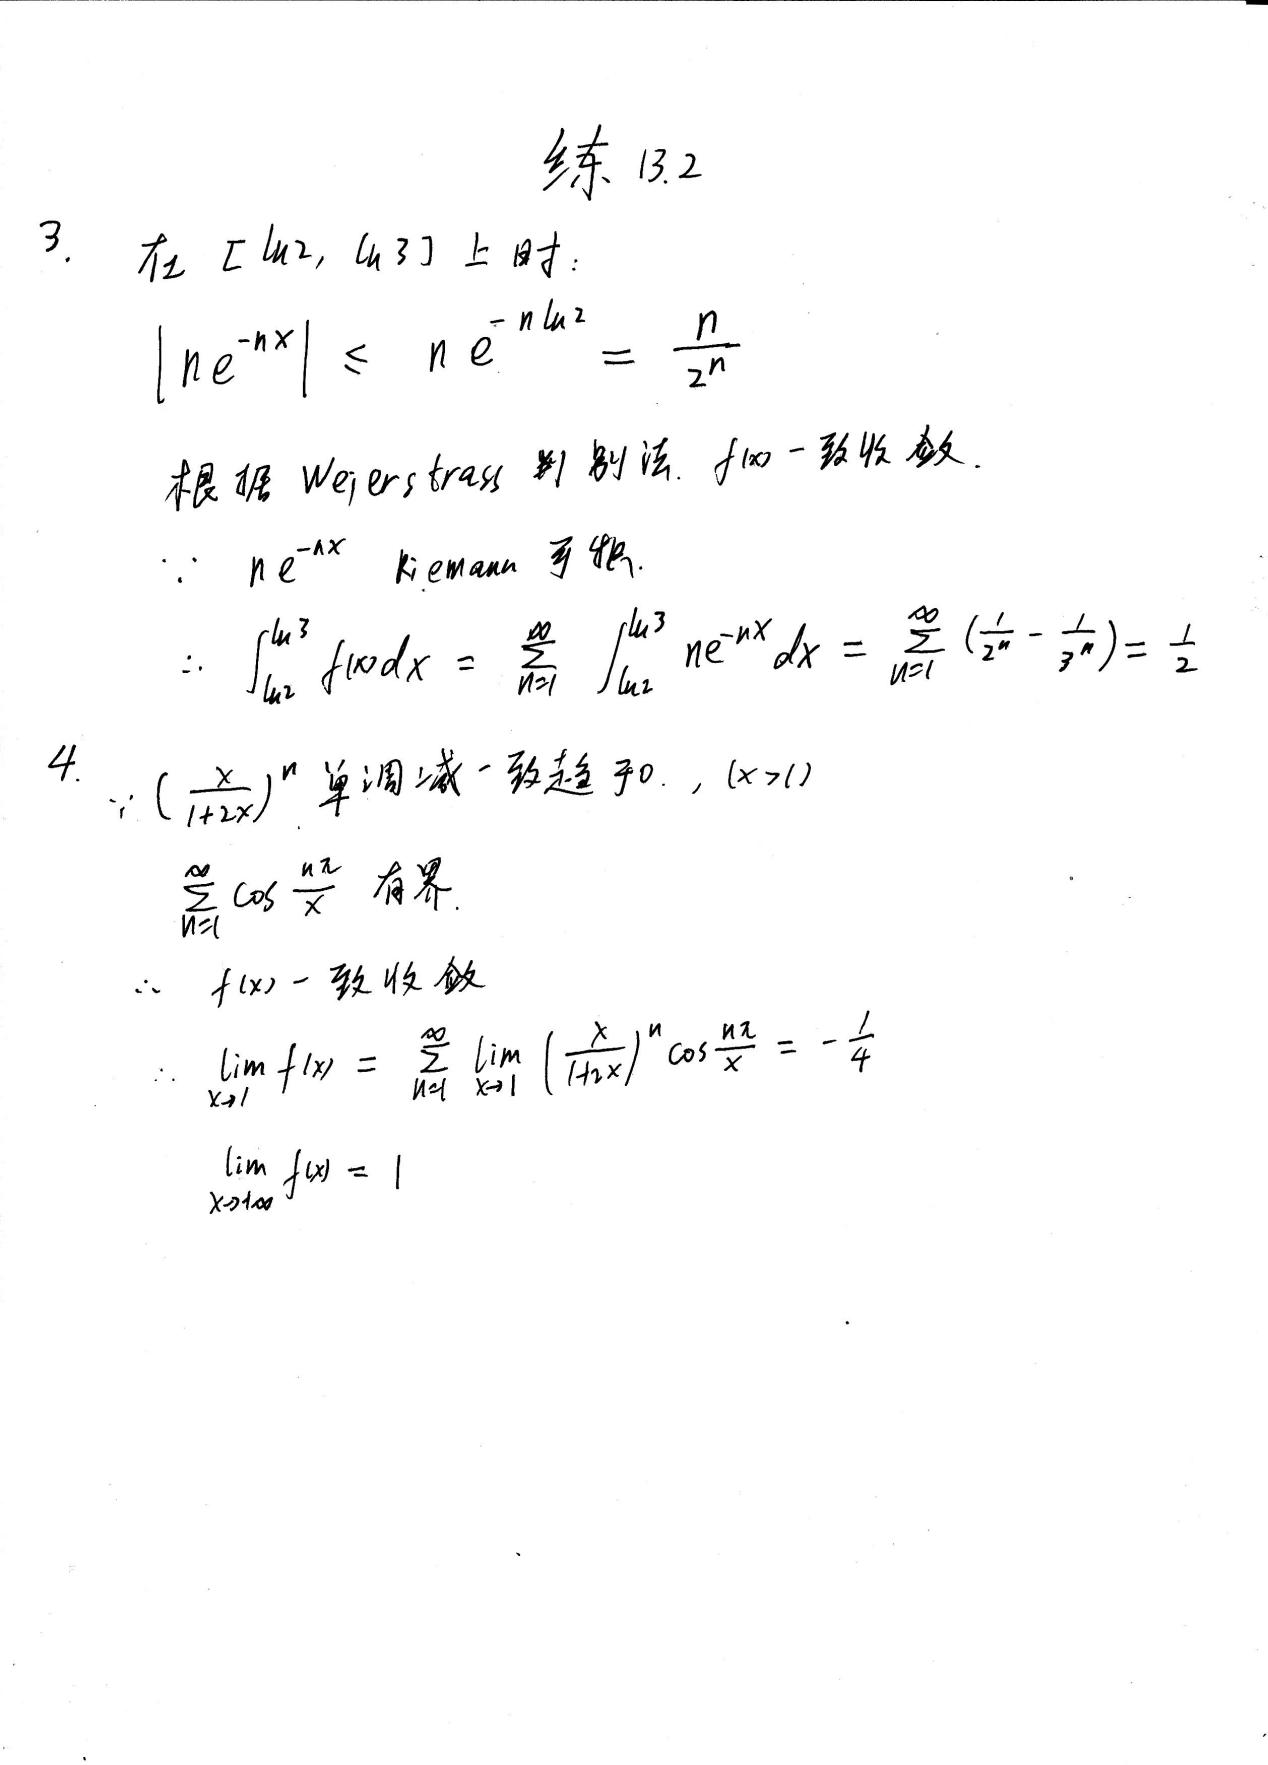 练 13.2
3. 在 [ln2, ln3] 上时:
|ne^{-nx}| ≤ ne^{-n ln2} = \frac{n}{2^n}
根据 Weierstrass 判别法. f(x) 一致收敛.
∵ ne^{-nx} Riemann 可积.
∴ \int_{ln2}^{ln3} f(x)dx = \sum_{n=1}^{∞} \int_{ln2}^{ln3} ne^{-nx}dx = \sum_{n=1}^{∞} (\frac{1}{2^n} - \frac{1}{3^n}) = \frac{1}{2}
4. ∵ (\frac{x}{1+2x})^n 单调减一致趋于0. , (x>1)
\sum_{n=1}^{∞} cos \frac{nπ}{x} 有界.
∴ f(x) 一致收敛
∴ \lim_{x→1} f(x) = \sum_{n=1}^{∞} \lim_{x→1} (\frac{x}{1+2x})^n cos \frac{nπ}{x} = -\frac{1}{4}
\lim_{x→+∞} f(x) = 1